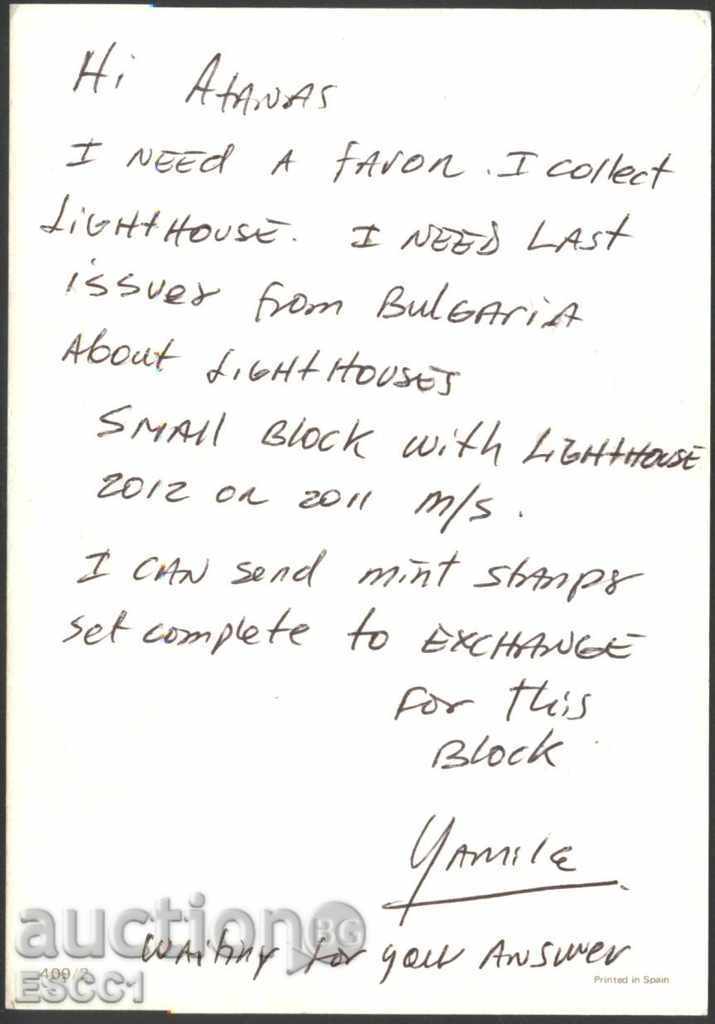 Hi Atanas
I NEEd A favor. I collect
LiGHtHOUSE. I NEED Last
issues from BulGARiA
About LIGHtHOUSES
SMAll Block with LIGHTHOUSE
2012 or 2011 m/s.
I CAN send mint stamps
set complete to EXCHANGE
for this
Block
Yamile
Waiting for your Answer
auction BG
400/2
ESCC1
Printed in Spain